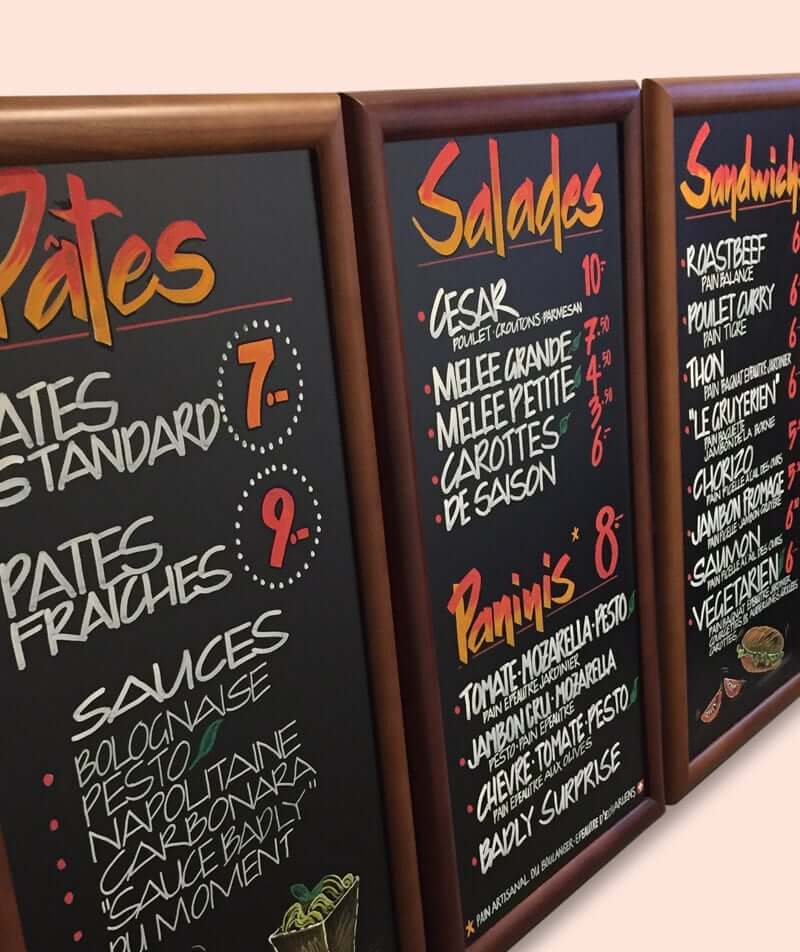 Pâtes
PATES
STANDARD
7.-
PATES
FRAICHES
9.-
SAUCES
BOLOGNAISE
PESTO
NAPOLITAINE
CARBONARA
"SAUCE BADLY"
DU MOMENT
Salades
CESAR 10-
POULET·CROUTONS·PARMESAN
MELEE GRANDE 7.50
MELEE PETITE 4.50
CAROTTES 3.50
DE SAISON 6.-
Paninis* 8.-
TOMATE·MOZARELLA·PESTO
PAIN EPEAUTRE JARDINIER
JAMBON CRU·MOZARELLA
PESTO·PAIN EPEAUTRE
CHEVRE·TOMATE·PESTO
PAIN EPEAUTRE AUX OLIVES
BADLY SURPRISE
* PAIN ARTISANAL DU BOULANGER-EPEAUTRE
Sandwich
ROASTBEEF 6
PAIN BALANCE
POULET CURRY 6
PAIN TIGRE
THON 6
PAIN BAGNAT EPEAUTRE JARDINIER
"LE GRUYERIEN" 6
PAIN BAGUETTE
JAMBON DE LA BORNE
CHORIZO 5
PAIN FICELLE
JAMBON FROMAGE 5
PAIN FICELLE
SAUMON 6
PAIN FICELLE
VEGETARIEN 6
PAIN BAGNAT EPEAUTRE JARDINIER
CAROTTES